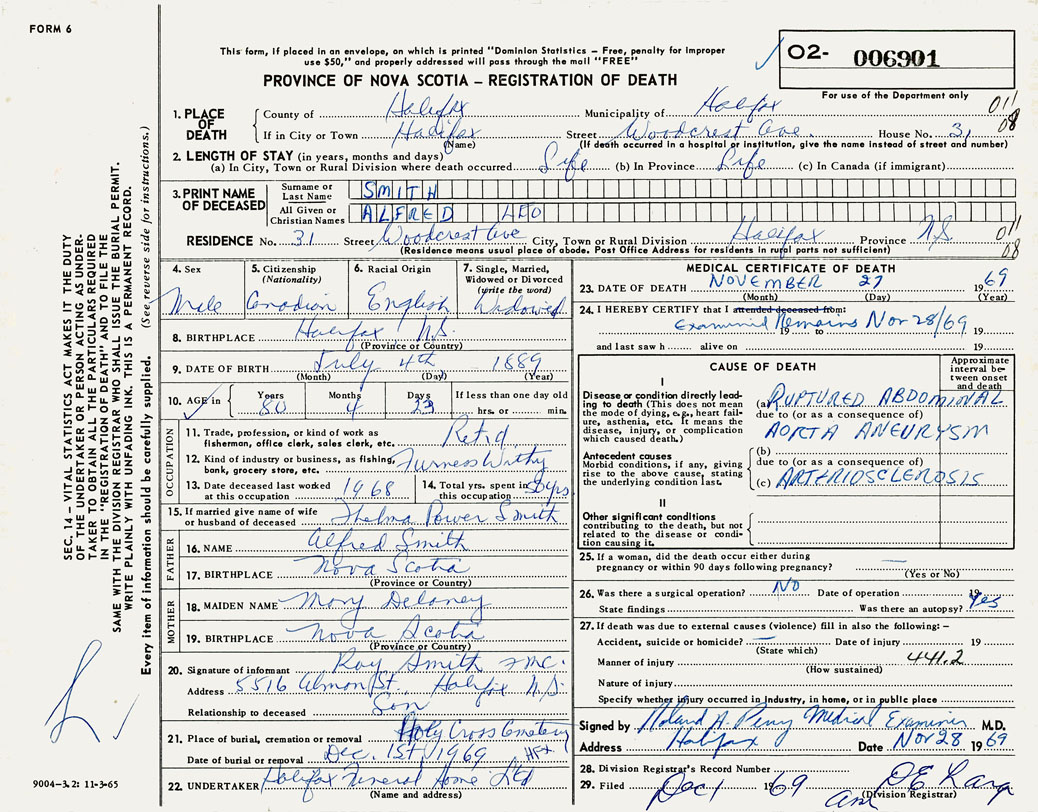 FORM 6
This form, if placed in an envelope, on which is printed "Dominion Statistics – Free, penalty for improper
use $50," and properly addressed will pass through the mail "FREE"
O2- 006901
For use of the Department only
PROVINCE OF NOVA SCOTIA – REGISTRATION OF DEATH
011
08
1. PLACE OF DEATH
County of Halifax Municipality of Halifax
If in City or Town Halifax Street Woodcrest Ave. House No. 31
(Name) (If death occurred in a hospital or institution, give the name instead of street and number)
2. LENGTH OF STAY (in years, months and days)
(a) In City, Town or Rural Division where death occurred Life (b) In Province Life (c) In Canada (if immigrant)
3. PRINT NAME OF DECEASED
Surname or Last Name SMITH
All Given or Christian Names ALFRED LEO
RESIDENCE No. 31 Street Woodcrest Ave City, Town or Rural Division Halifax Province N.S. 011
(Residence means usual place of abode. Post Office Address for residents in rural parts not sufficient) 08
4. Sex Male
5. Citizenship (Nationality) Canadian
6. Racial Origin English
7. Single, Married, Widowed or Divorced (write the word) Widowed
8. BIRTHPLACE Halifax N.S.
(Province or Country)
9. DATE OF BIRTH July 4th 1889
(Month) (Day) (Year)
10. AGE in Years 80 Months 4 Days 23 If less than one day old
hrs. or min.
OCCUPATION
11. Trade, profession or kind of work as
fisherman, office clerk, sales clerk, etc. Ret'd
12. Kind of industry or business, as fishing,
bank, grocery store, etc. Furness Withy
13. Date deceased last worked
at this occupation 1968
14. Total yrs. spent in
this occupation 50 yrs
15. If married give name of wife
or husband of deceased Thelma Power Smith
FATHER
16. NAME Alfred Smith
17. BIRTHPLACE Nova Scotia
(Province or Country)
MOTHER
18. MAIDEN NAME Mary Delaney
19. BIRTHPLACE Nova Scotia
(Province or Country)
20. Signature of informant Roy Smith
Address 5516 Almon St., Halifax N.S.
Relationship to deceased Son
21. Place of burial, cremation or removal Holy Cross Cemetery
HFX
Date of burial or removal Dec. 1st 1969
22. UNDERTAKER Halifax Funeral Home Ltd
(Name and address)
MEDICAL CERTIFICATE OF DEATH
23. DATE OF DEATH NOVEMBER 27 1969
(Month) (Day) (Year)
24. I HEREBY CERTIFY that I attended deceased from:
Examined Remains Nov 28/69
19 to 19
and last saw h alive on 19
CAUSE OF DEATH
Approximate interval between onset and death
I
Disease or condition directly leading
to death (This does not mean
the mode of dying, e.g., heart failure,
asthenia, etc. It means the
disease, injury, or complication
which caused death.)
(a) RUPTURED ABDOMINAL
due to (or as a consequence of)
AORTA ANEURYSM
Antecedent causes
Morbid conditions, if any, giving
rise to the above cause, stating
the underlying condition last.
(b)
due to (or as a consequence of)
(c) ARTERIOSCLEROSIS
II
Other significant conditions
contributing to the death, but not
related to the disease or condition
causing it.
25. If a woman, did the death occur either during
pregnancy or within 90 days following pregnancy? —
(Yes or No)
26. Was there a surgical operation? NO Date of operation 19
State findings Was there an autopsy? Yes
27. If death was due to external causes (violence) fill in also the following: –
Accident, suicide or homicide? — Date of injury 19
(State which)
Manner of injury 441.2
(How sustained)
Nature of injury
Specify whether injury occurred in industry, in home, or in public place
Signed by Roland A. Perry Medical Examiner M.D.
Address Halifax Date Nov 28 1969
28. Division Registrar's Record Number
29. Filed Dec 1 1969
(Division Registrar)
SEC. 14 – VITAL STATISTICS ACT MAKES IT THE DUTY
OF THE UNDERTAKER OR PERSON ACTING AS UNDERTAKER
TO OBTAIN ALL THE PARTICULARS REQUIRED
IN THE "REGISTRATION OF DEATH" AND TO FILE THE
SAME WITH THE DIVISION REGISTRAR WHO SHALL ISSUE THE BURIAL PERMIT.
WRITE PLAINLY WITH UNFADING INK. THIS IS A PERMANENT RECORD.
Every item of information should be carefully supplied. (See reverse side for instructions.)
9004-3.2: 11-3-65